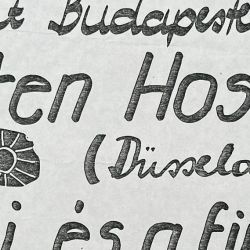 t Budapeste
ten Hos
(Düsseld
i és a fi